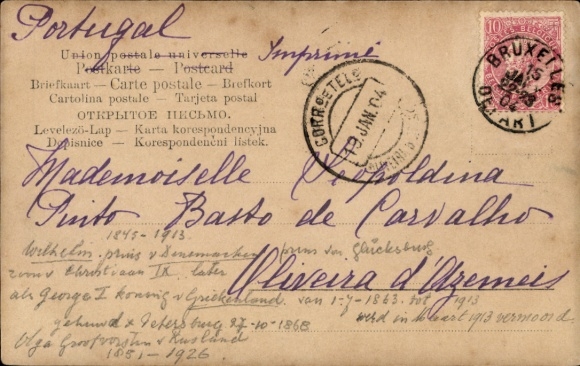 Portugal
Union postale universelle
Imprimé
Postkarte — Postcard
Briefkaart — Carte postale — Brefkort
Cartolina postale — Tarjeta postal
ОТКРЫТОЕ ПИСЬМО.
Levelező-Lap — Karta korespondencyjna
Dopisnice — Korespondenční lístek.
10
BRUXELLES
15
JANV
22-23
04
DEPART
CORRO E TELEG
19 JAN. 04
Mademoiselle Leopoldina
Pinto Basto de Carvalho
1845-1913
Wilhelm, prins v Denemarken prins von Glücksburg
zoon v Christiaan IX later
Oliveira d'Azemeis
als George I koning v Griekenland van 1-7-1863 tot 1913
gehuwd x Petersburg 27-10-1868 werd in Maart 1913 vermoord.
Olga Grootvorstin v Rusland
1851-1926